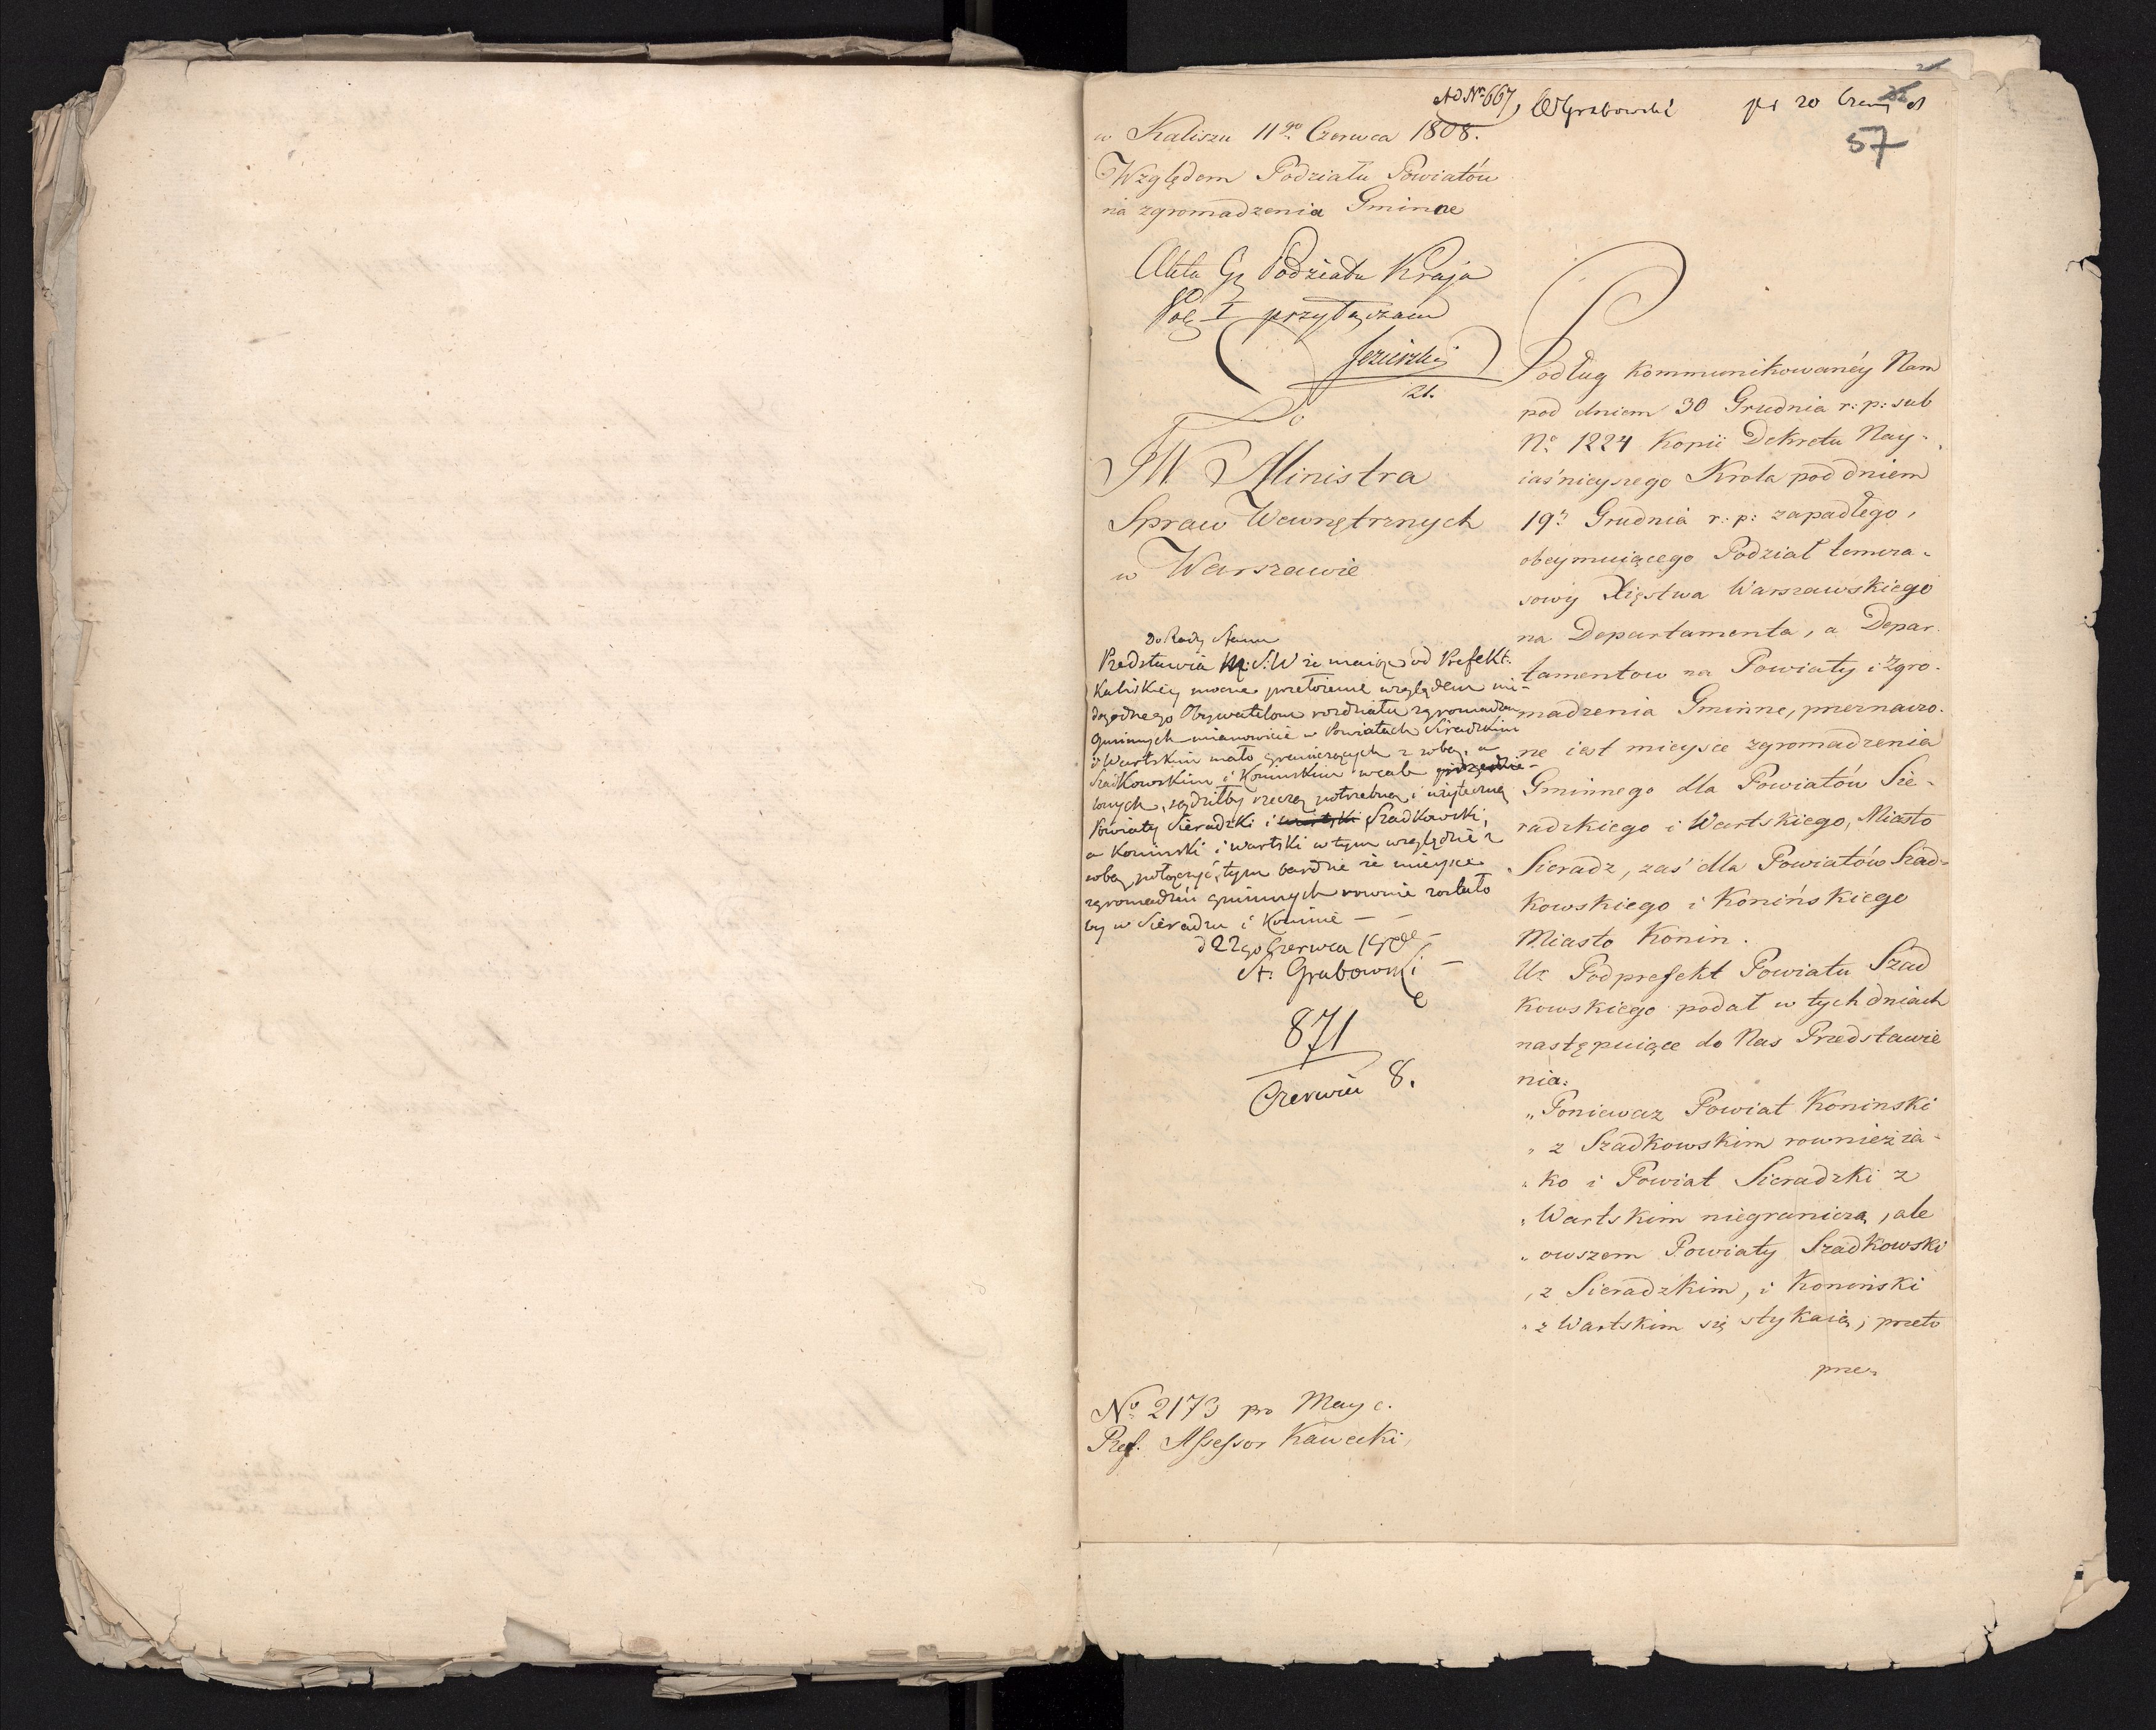 Ad No 667, WGrabowski
57
w Kaliszu 11go Czerwca 1808.
Względem Podziału Powiatów
na zgromadzenia Gminne
Akta Podziału Kraju
przyłączam
21.
Do
JW Ministra
Spraw Wewnętrznych
w Warszawie
Do Rady Stanu
Przedstawia M: S: W że maiąc od Prefekt:
Kaliskiey mocne przełożenie względem nie-
dogodnego Obywatelom rozdziału zgromadzeń
gminnych mianowicie w Powiatach Sieradzkim
i Wartskim mało graniczących z sobą, a
Szadkowskim i Konińskim wcale
sądziłby rzeczą potrzebną i użyteczną
Powiaty Sieradzki i Szadkowski,
a Koninski i Wartski w tym względzie z
sobą połączyć, tym bardzie że mieysce
zgromadzeń gminnych rownie zostało
by w Sieradzu i Koninie —
d 22go Czerwca
St. Grabowski
871
Czerwiec 8.
No 2173 pro May c.
Ref. Assessor Kawecki,
Podług kommunikowanéy Nam
pod dniem 30 Grudnia r: p: sub
No 1224 Kopii Dekretu Nay-
iaśnieyszego Krola pod dniem
19. Grudnia r: p: zapadłego,
obeymuiącego Podział teraznie-
sowy Xięstwa Warszawskiego
na Departamenta, a Depar-
tamentow na Powiaty i Zgro-
madzenia Gminne, przeznaczo-
ne iest mieysce zgromadzenia
Gminnego dla Powiatów Sie-
radzkiego i Wartskiego, Miasto
Sieradz, zaś dla Powiatów Szad-
kowskiego i Konińskiego
Miasto Konin.
Ur Podprefekt Powiatu Szad
kowskiego podał w tych dniach
następuiące do Nas Przedstawie
nia:
„Poniewaz Powiat Koninski
„z Szadkowskim rownież ia-
„ko i Powiat Sieradzki z
„Wartskim niegraniczą, ale
„owszem Powiaty Szadkowski
„z Sieradzkim, i Koninski
„z Wartskim się stykaią; przeto
prze-